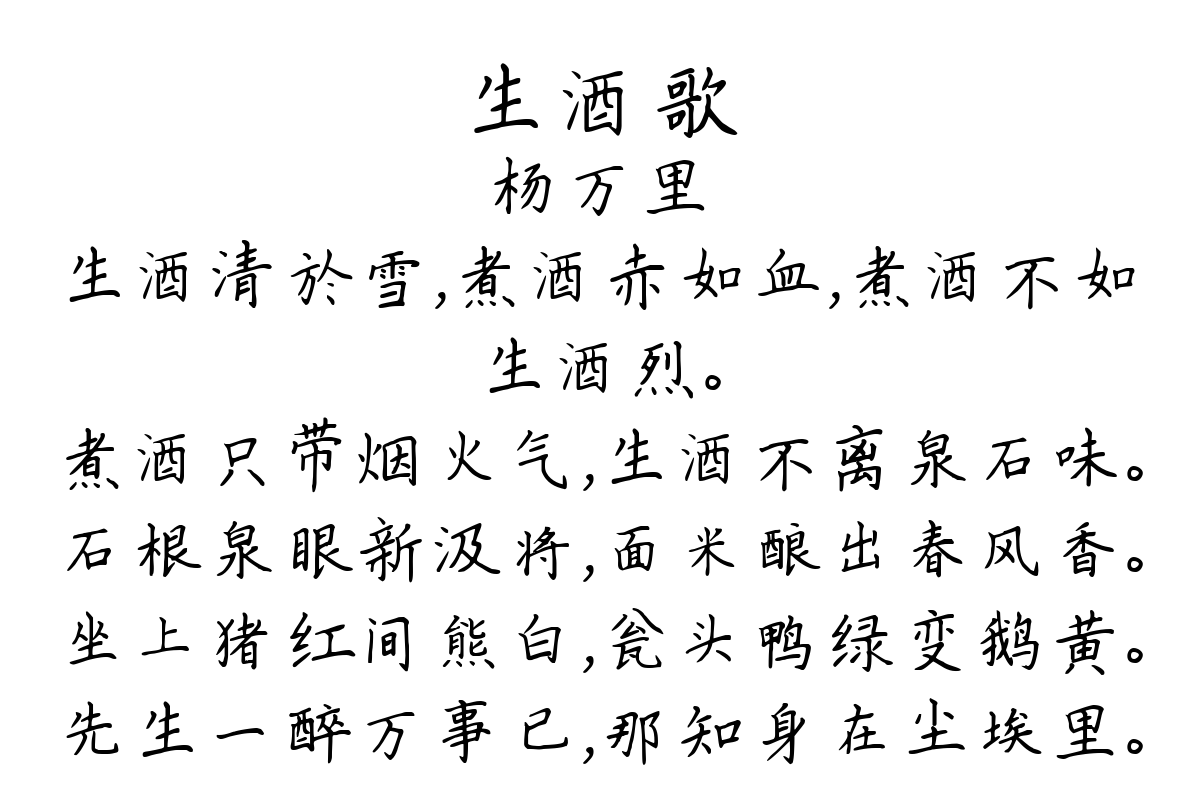 生酒歌
杨万里
生酒清於雪,煮酒赤如血,煮酒不如
生酒烈。
煮酒只带烟火气,生酒不离泉石味。
石根泉眼新汲将,面米酿出春风香。
坐上猪红间熊白,瓮头鸭绿变鹅黄。
先生一醉万事已,那知身在尘埃里。